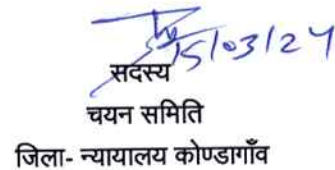 15/03/24
सदस्य
चयन समिति
जिला- न्यायालय कोण्डागाँव